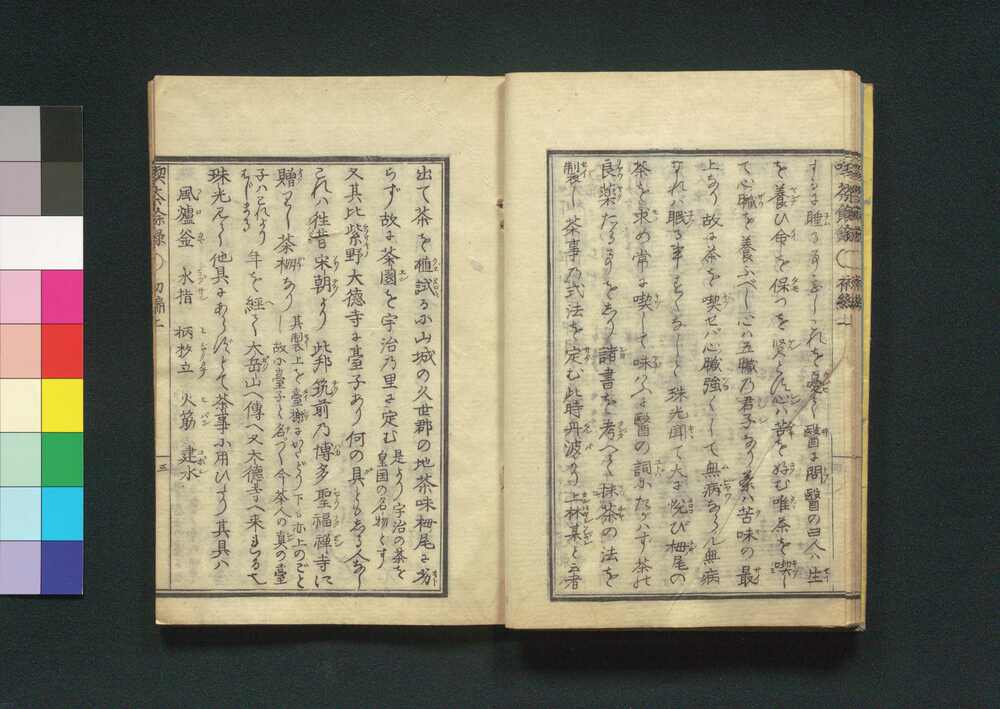 するに睡る事なしこれを憂て醫に問醫の曰人は生
を養ひ命を保つを賢とす心は苦を好む唯茶を喫し
て心臓を養ふべし心は五臓の君子なり茶は苦味の最
上なり故に茶を喫せば心臓強くして無病ならん無病
なれは眠る事なしと珠光聞て大に悦び栂尾の
茶を求め常に喫して味はふ醫の詞にたがはず茶は
良薬たる事をしり諸書を考へて抹茶の法を
製し茶事乃式法を定む此時丹波より上林某と云者
出て茶を植試るに山城の久世郡の地茶味栂尾に劣
らず故に茶園を宇治乃里に定む 是より宇治の茶を皇国の名物とす
又其比紫野大徳寺に臺子あり何の具ともしる人なし
これハ往昔宋朝より此邦筑前乃博多聖福禅寺に
贈りし茶棚なり 其製上を臺榭にかたどり下も亦上のごとし故に臺子と名づく今茶人の真の臺
子ハこれよりはじまる 年を經て大岳山へ傳へ又大徳寺へ来れるを
珠光見て他具にあらずとて茶事に用ひたり其具ハ
風爐釜 水指 柄杓立 火筋 建水
喫茶餘録 初編上 三